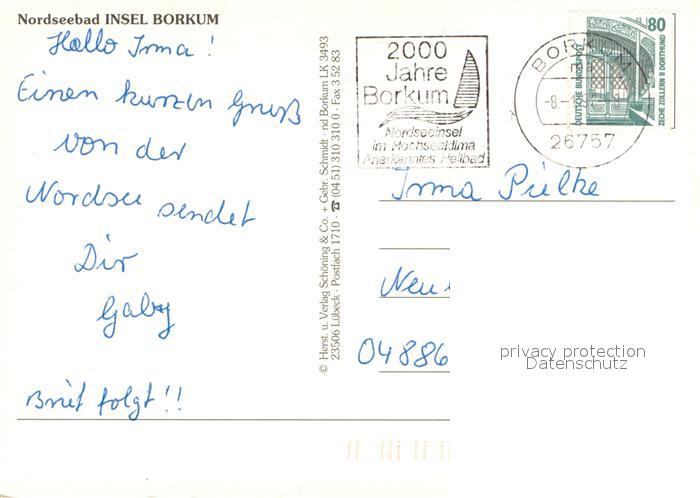 Nordseebad INSEL BORKUM
Hallo Irma!
Einen kurzen Gruß
von der
Nordsee sendet
Dir
Gaby
Brief folgt!!
© Herst. u. Verlag Schöning & Co. + Gebr. Schmidt · nd Borkum LK 3493
23506 Lübeck · Postfach 1710 · ☎ (04 51) 310 310 0 · Fax 3 52 83
2000
Jahre
Borkum
Nordseeinsel
im Hochseeklima
Anerkanntes Heilbad
BORKUM
-8.-
26757
DEUTSCHE BUNDESPOST
80
ZECHE ZOLLERN II DORTMUND
Irma Pielke
Neu
04886
privacy protection
Datenschutz